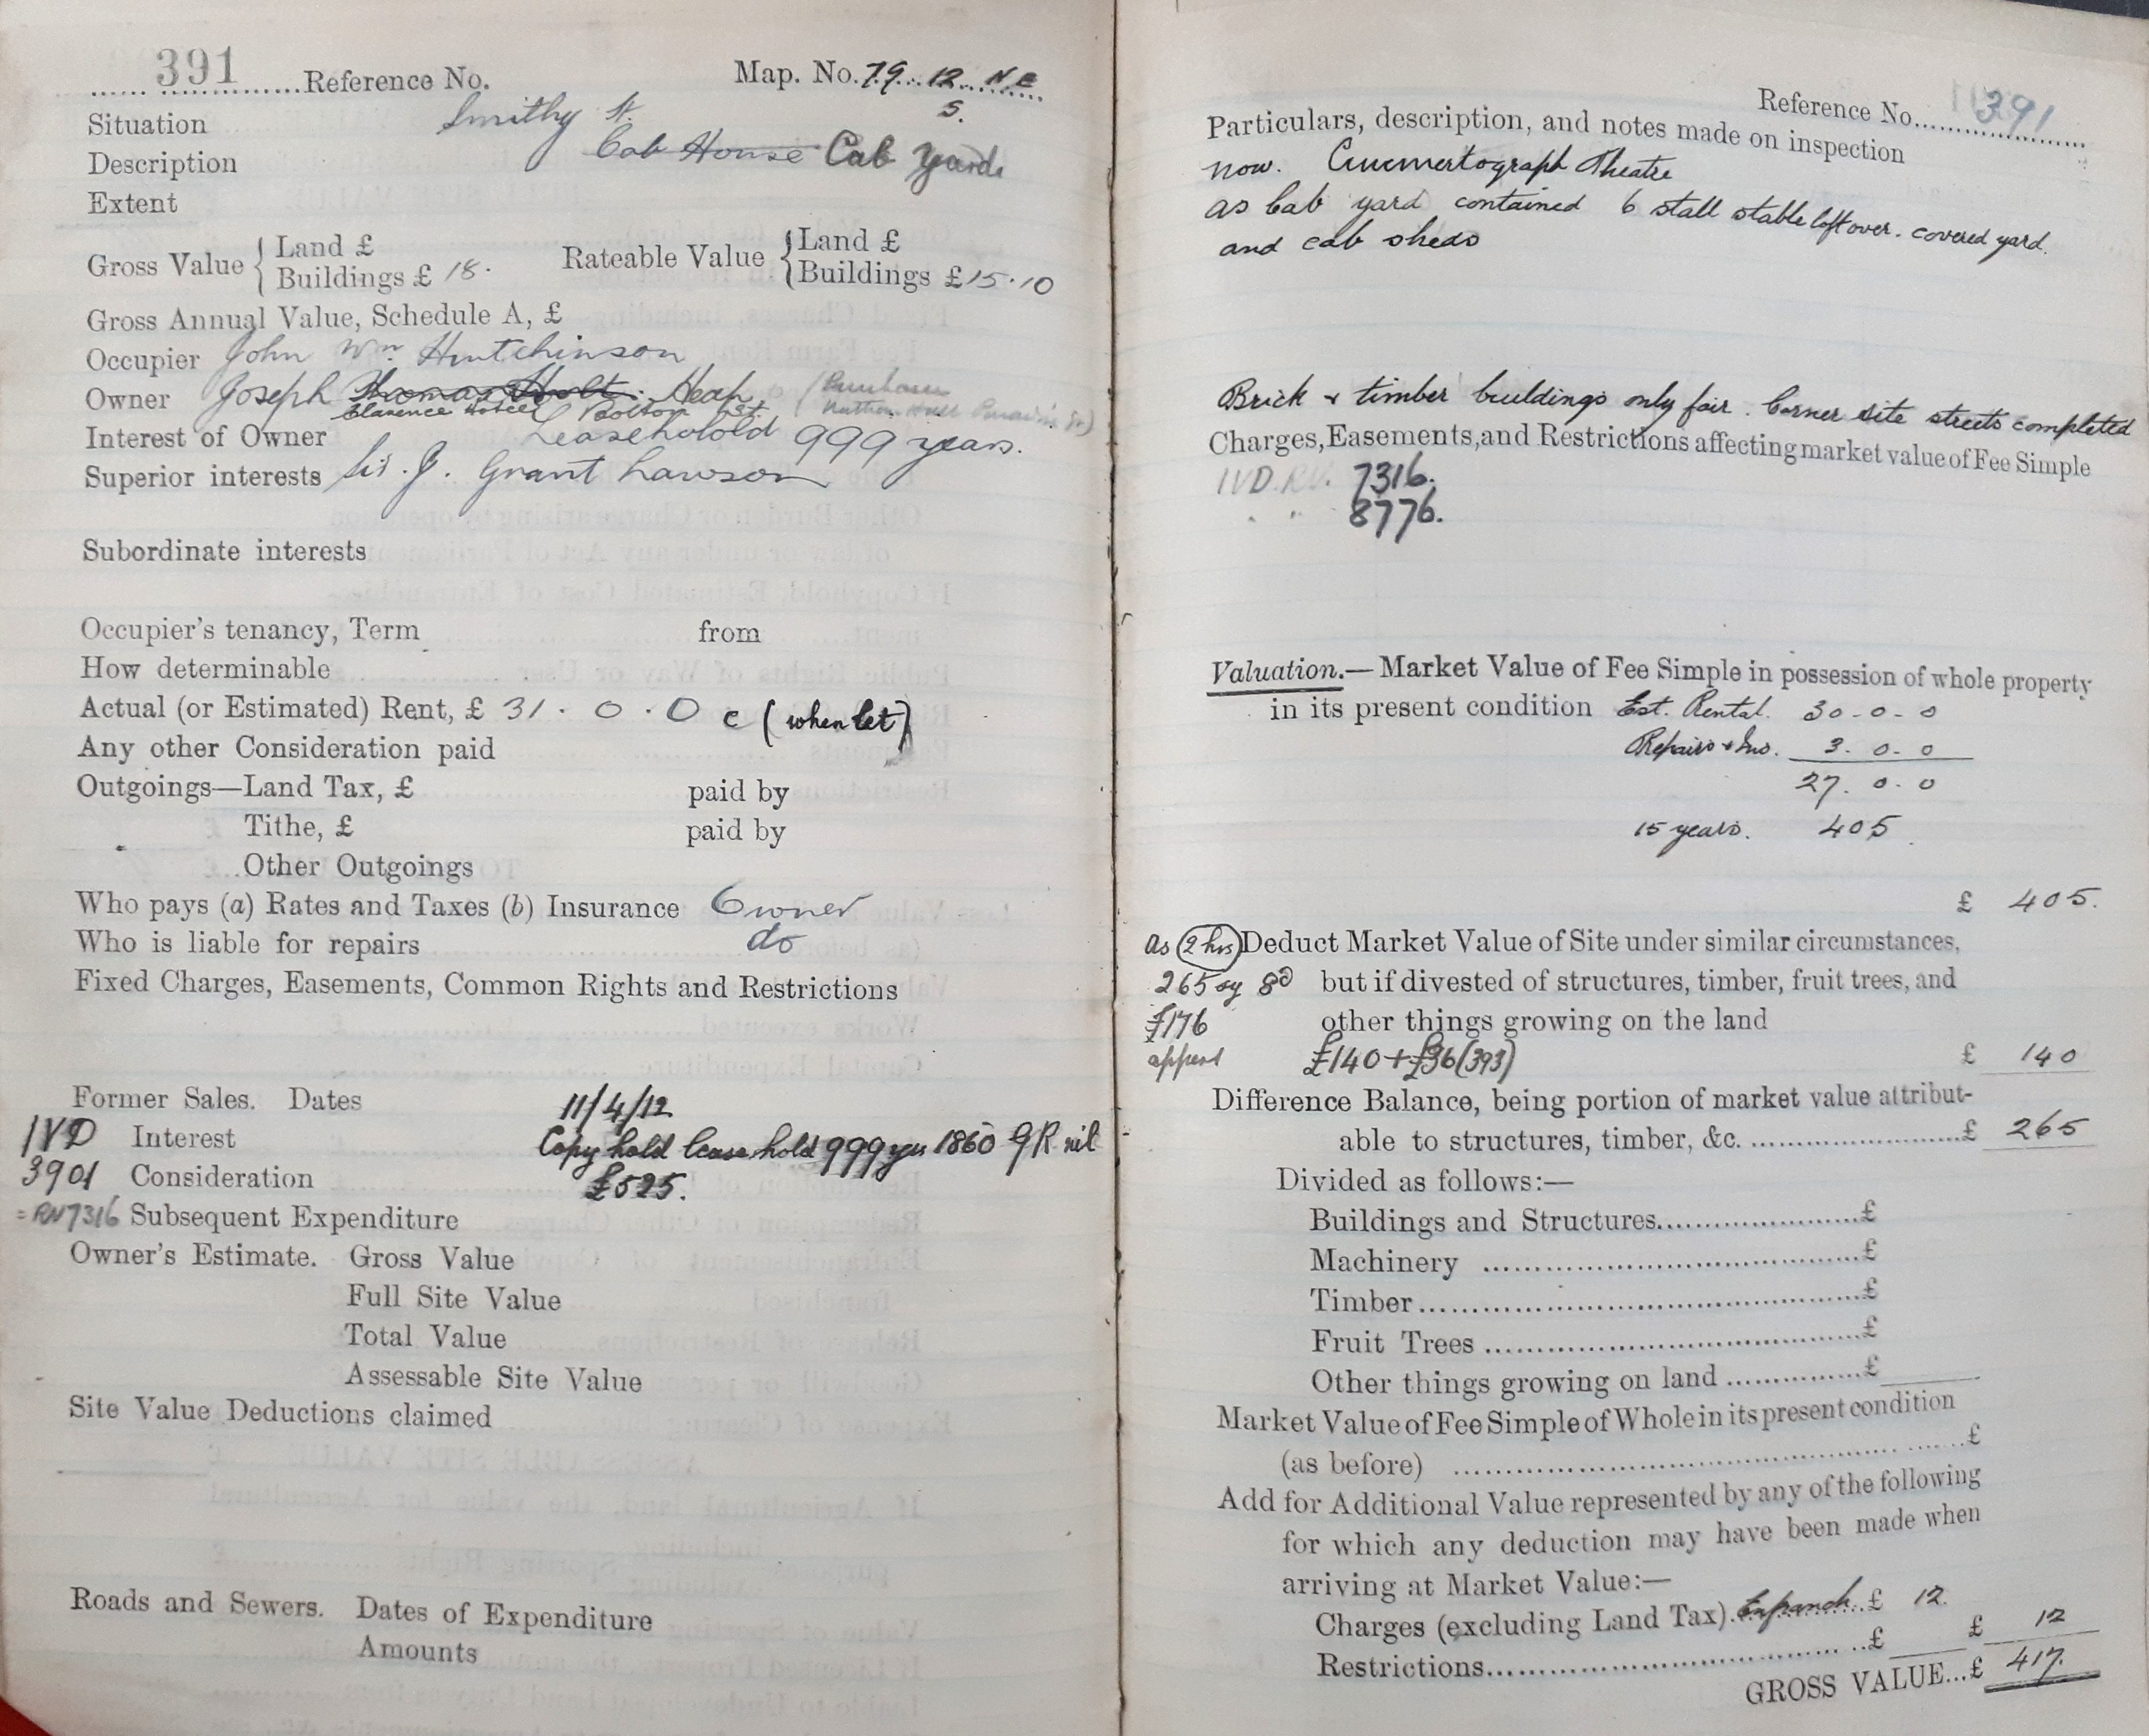 391 Reference No. Map. No. 79 12 N E
S.
Situation Smithy St.
Description Cab House Cab Yard
Extent
Gross Value { Land £
Buildings £ 18.
Rateable Value { Land £
Buildings £15.10
Gross Annual Value, Schedule A, £
Occupier John Wm. Hutchinson
Owner Joseph Thomas Holt. Heap (Purchaser
Clarence Hotel Bolton St.
Interest of Owner Leasehold 999 years.
Superior interests Sir. J. Grant Lawson
Subordinate interests
Occupier's tenancy, Term from
How determinable
Actual (or Estimated) Rent, £ 31. 0. 0 c (when let)
Any other Consideration paid
Outgoings—Land Tax, £ paid by
Tithe, £ paid by
Other Outgoings
Who pays (a) Rates and Taxes (b) Insurance Owner
Who is liable for repairs do
Fixed Charges, Easements, Common Rights and Restrictions
Former Sales. Dates 11/4/12
IVD Interest Copyhold leasehold 999 yrs 1860 GR nil
3901 Consideration £525.
=RV7316 Subsequent Expenditure
Owner's Estimate. Gross Value
Full Site Value
Total Value
Assessable Site Value
Site Value Deductions claimed
Roads and Sewers. Dates of Expenditure
Amounts
Reference No. 391
Particulars, description, and notes made on inspection
now. Cinemertograph Theatre
as Cab yard contained 6 stall stable loft over. covered yard.
and cab sheds
Brick + timber buildings only fair. Corner site streets completed
Charges, Easements, and Restrictions affecting market value of Fee Simple
IVD.RV. 7316.
" " 8776.
Valuation.—Market Value of Fee Simple in possession of whole property
in its present condition Est. Rental. 30-0-0
Repairs + Ins. 3. 0. 0
27. 0. 0
15 years. 405
£ 405.
as (2 hrs) Deduct Market Value of Site under similar circumstances,
265 sy 8d but if divested of structures, timber, fruit trees, and
£176 other things growing on the land
apport £140+£36(393) £ 140
Difference Balance, being portion of market value attribut-
able to structures, timber, &c. £ 265
Divided as follows:—
Buildings and Structures £
Machinery £
Timber £
Fruit Trees £
Other things growing on land £
Market Value of Fee Simple of Whole in its present condition
(as before) £
Add for Additional Value represented by any of the following
for which any deduction may have been made when
arriving at Market Value:—
Charges (excluding Land Tax) Enfranch. £ 12.
Restrictions £ £ 12
GROSS VALUE...£ 417.